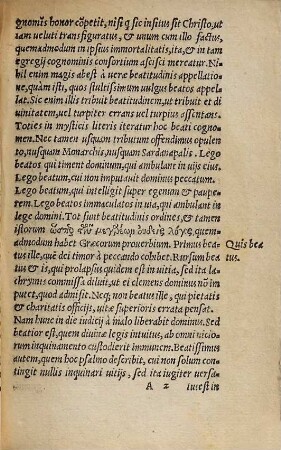 gnomiis honor cōpetit, nisi q̃ sic insitus sit Christo, ut
iam ueluti transfiguratus, & unum cum illo factus,
quemadmodum in ipsius immortalitatis, ita, & in tam
egregij cognominis consortium ascisci mereatur. Ni-
hil enim magis abest à uera beatitudinis appellatio-
ne, quàm isti, quos stultissimum uulgus beatos appel-
lat. Sic enim illis tribuit beatitudinem, ut tribuit et di
uinitatem, uel turpiter errans uel turpius assentans.
Toties in mysticis literis iteratur hoc beati cogno-
men. Nec tamen usquam tributum offendimus opulen
to, nusquam Monarchis, nusquam Sardanapalis. Lego
beatos qui timent dominum, qui ambulant in uijs eius.
Lego beatum, cui non imputauit dominus peccatum.
Lego beatum, qui intelligit super egenum & paupe-
rem. Lego beatos immaculatos in uia, qui ambulant in
lege domini. Tot sunt beatitudinis ordines, & tamen
istorum οὔτε τῶν μεγαρέων οὐδεὶς λόγος, quem-
admodum habet Græcorum prouerbium. Primus bea-
tus ille, quē dei timor à peccando cohibet. Rursum bea
tus & is, qui prolapsus quidem est in uitia, sed ita la-
chrymis commissa diluit, ut ei clemens dominus nō im
putet, quod admisit. Neq; non beatus ille, qui pietatis
& charitatis officijs, uitæ superioris errata pensat.
Nam hunc in die iudicij à malo liberabit dominus. Sed
beatior est, quem diuinæ legis intuitus, ab omni uicio-
rum inquinamento custodierit immunem. Beatissimus
autem, quem hoc psalmo describit, cui non solum con-
tingit nullis inquinari uitijs, sed ita iugiter uersa-
Quis bea
tus.
A 2 iur est in